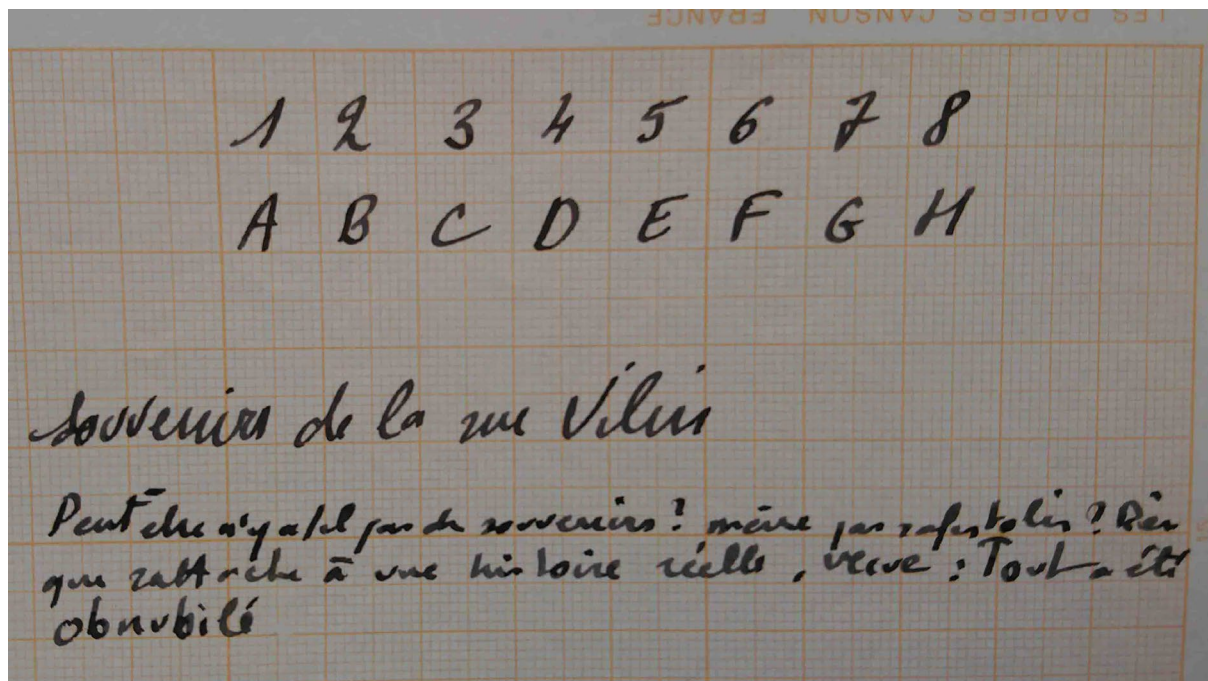 LES PAPIERS CANSON FRANCE
1 2 3 4 5 6 7 8
A B C D E F G H
Souvenirs de la rue Vilin
Peut être n'y a t'il pas de souvenirs ? même pas ? Rien
que rattache à une histoire réelle, vécue : Tout a été
obnubilé